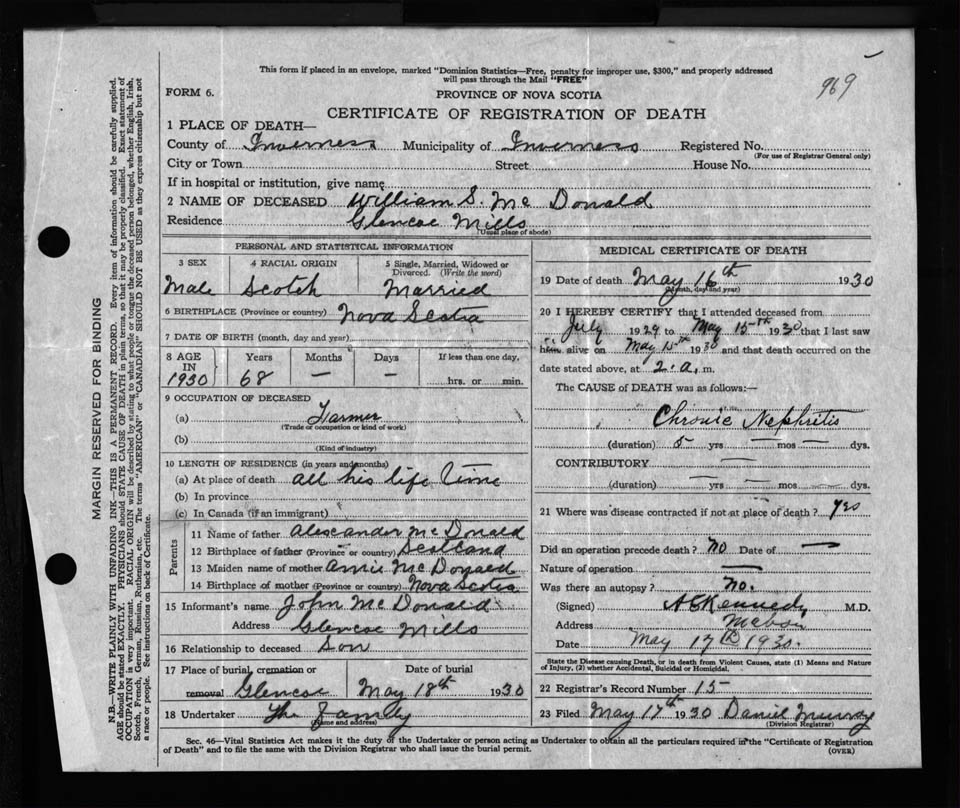 969
This form if placed in an envelope, marked "Dominion Statistics—Free, penalty for improper use, $300," and properly addressed
will pass through the Mail "FREE"
FORM 6.
PROVINCE OF NOVA SCOTIA
CERTIFICATE OF REGISTRATION OF DEATH
1 PLACE OF DEATH—
County of Inverness Municipality of Inverness Registered No.
(For use of Registrar General only)
City or Town Street House No.
If in hospital or institution, give name
2 NAME OF DECEASED William S. Mc Donald
Residence Glencoe Mills
(Usual place of abode)
PERSONAL AND STATISTICAL INFORMATION
3 SEX 4 RACIAL ORIGIN 5 Single, Married, Widowed or
Divorced. (Write the word)
Male Scotch Married
6 BIRTHPLACE (Province or country) Nova Scotia
7 DATE OF BIRTH (month, day and year)
8 AGE Years Months Days If less than one day.
IN
1930 68 — — hrs. or min.
9 OCCUPATION OF DECEASED
(a) Farmer
(Trade or occupation or kind of work)
(b)
(Kind of industry)
10 LENGTH OF RESIDENCE (in years and months)
(a) At place of death all his life time
(b) In province
(c) In Canada (if an immigrant)
Parents
11 Name of father Alexander McDonald
12 Birthplace of father (Province or country) Scotland
13 Maiden name of mother Annie McDonald
14 Birthplace of mother (Province or country) Nova Scotia
15 Informant's name John McDonald
Address Glencoe Mills
16 Relationship to deceased Son
17 Place of burial, cremation or Date of burial
removal Glencoe May 18th 1930
18 Undertaker The Family
(name and address)
MEDICAL CERTIFICATE OF DEATH
19 Date of death May 16th 1930
(Month, day and year)
20 I HEREBY CERTIFY that I attended deceased from
July 1929 to May 15th 1930 that I last saw
him alive on May 15th 1930 and that death occurred on the
date stated above, at 2. a. m.
The CAUSE of DEATH was as follows:—
Chronic Nephritis
(duration) 5 yrs — mos — dys.
CONTRIBUTORY —
(duration) — yrs — mos — dys.
21 Where was disease contracted if not at place of death? yes
Did an operation precede death? no Date of —
Nature of operation —
Was there an autopsy? no.
(Signed) A E Kennedy M.D.
Address Mabou
Date May 17th 1930.
State the Disease causing Death, or in death from Violent Causes, state (1) Means and Nature
of Injury, (2) whether Accidental, Suicidal or Homicidal.
22 Registrar's Record Number 15
23 Filed May 17th 1930 Daniel Murray
(Division Registrar)
Sec. 46—Vital Statistics Act makes it the duty of the Undertaker or person acting as Undertaker to obtain all the particulars required in the "Certificate of Registration
of Death" and to file the same with the Division Registrar who shall issue the burial permit.
(OVER)
MARGIN RESERVED FOR BINDING
N.B.—WRITE PLAINLY WITH UNFADING INK—THIS IS A PERMANENT RECORD. Every item of information should be carefully supplied.
AGE should be stated EXACTLY. PHYSICIANS should STATE CAUSE OF DEATH in plain terms, so that it may be properly classified. Exact statement of
OCCUPATION is very important. RACIAL ORIGIN will be described by stating to what people or tongue the deceased person belonged, whether English, Irish,
Scotch, French, German, Russian, Ruthenian, etc. The terms "AMERICAN" or "CANADIAN" SHOULD NOT BE USED as they express citizenship but not
a race or people. See instructions on back of Certificate.